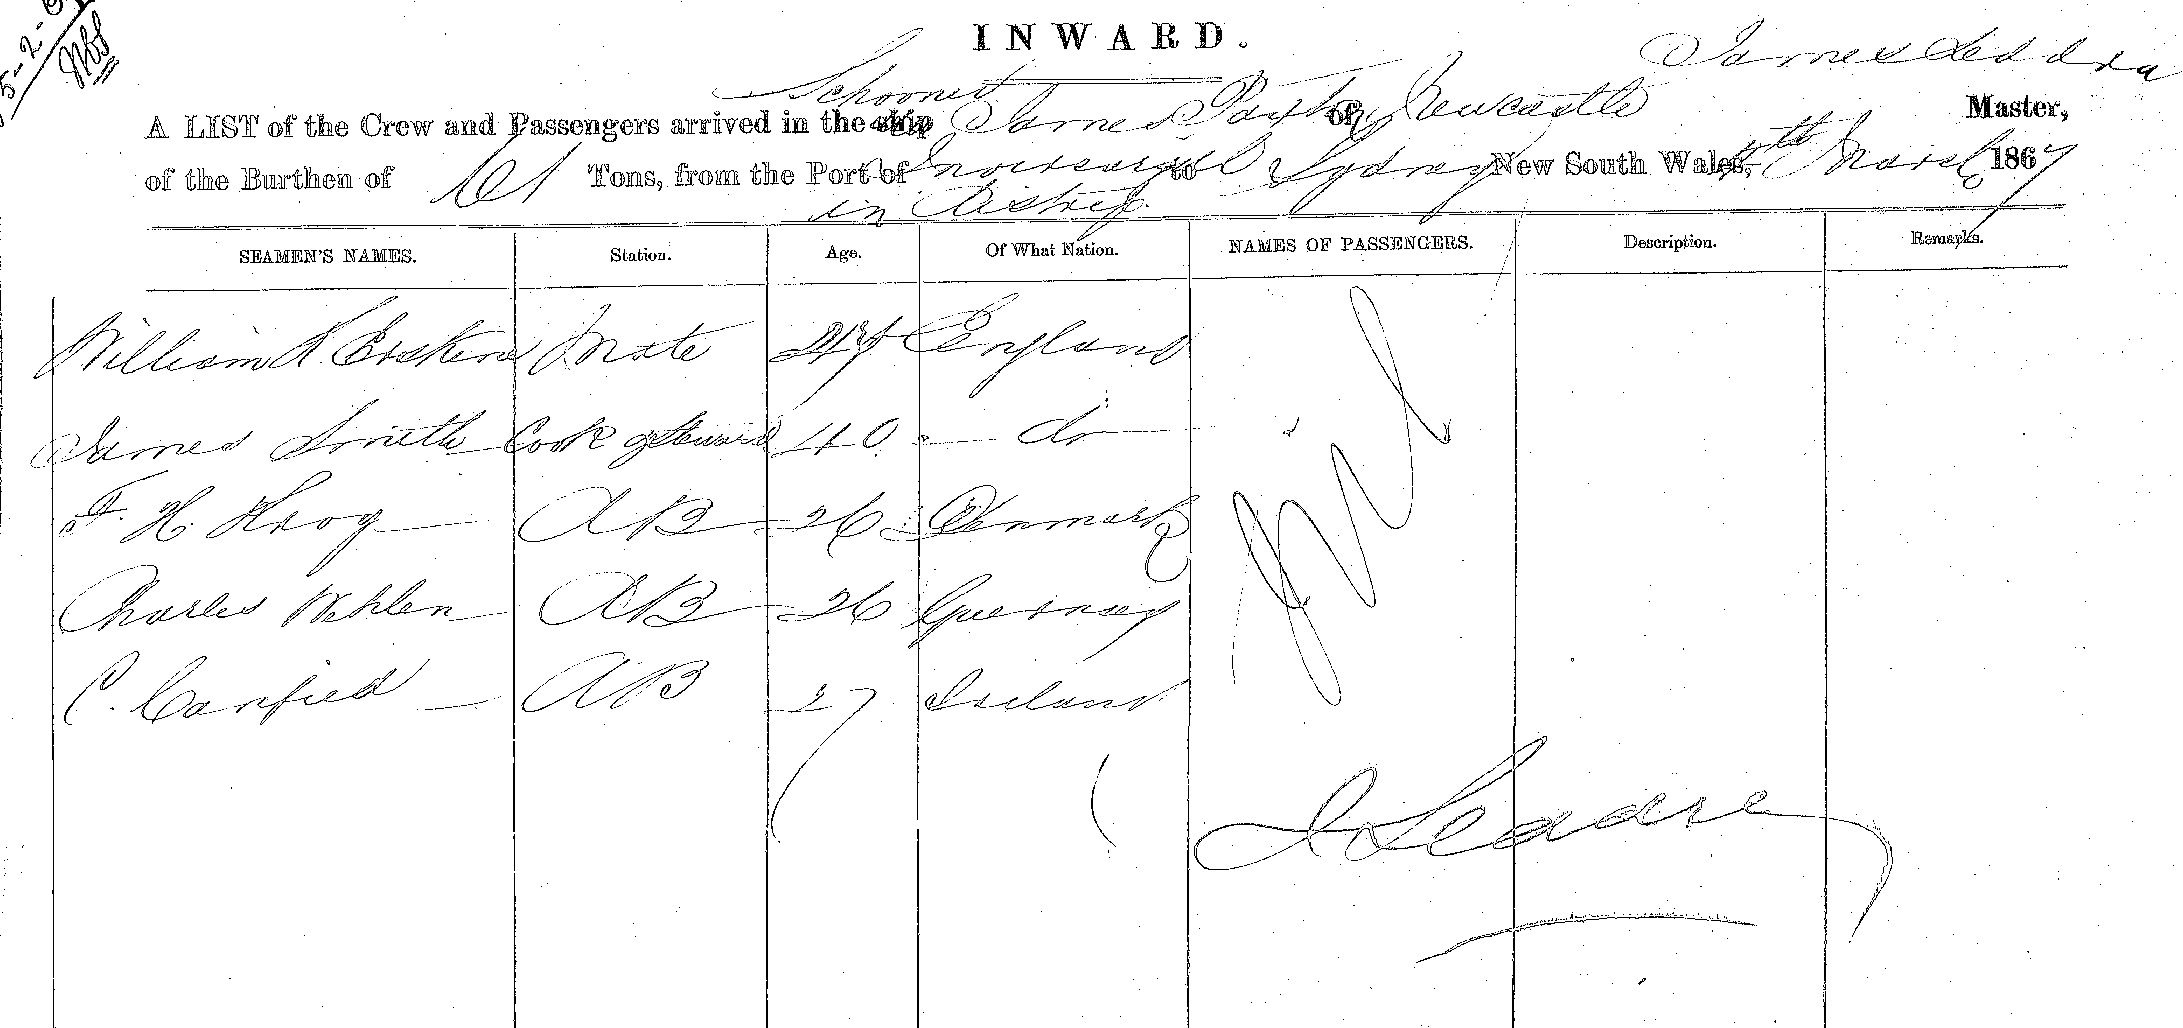 INWARD.
James Leddra
A LIST of the Crew and Passengers arrived in the ship Schooner James Paxton of Newcastle Master,
of the Burthen of 161 Tons, from the Port of Invercargil to Sydney New South Wales, March 1867
in
SEAMEN'S NAMES. Station. Age. Of What Nation. NAMES OF PASSENGERS. Description. Remarks.
William Mate England
James Smith Cook & Steward 40 do
F. H. Krog AB 26 Denmark
Charles AB 26 Guernsey
C. Canfied AB 27 Ireland
Nil
J Leddra